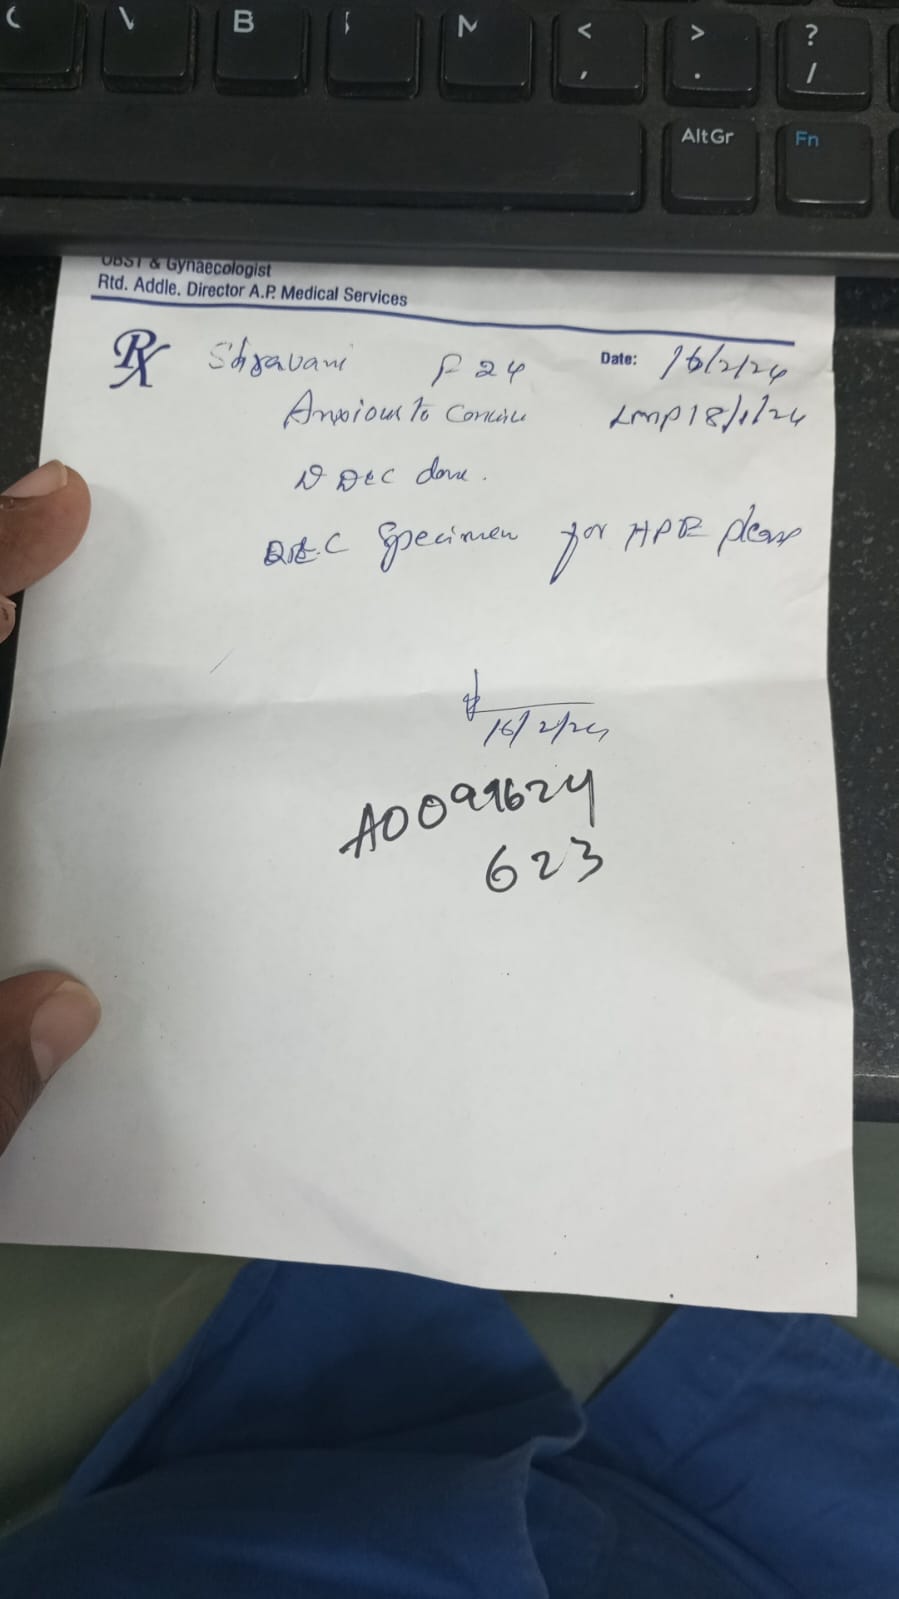 B M < >  ?
, . /
AltGr Fn
OBST & Gynaecologist
Rtd. Addle. Director A.P. Medical Services
Rx Shravani F 24 Date: 16/2/24
Anxious to Concieve LMP 18/1/24
D&C done.
D&C Specimen for HPE please
16/2/24
A0099624
623